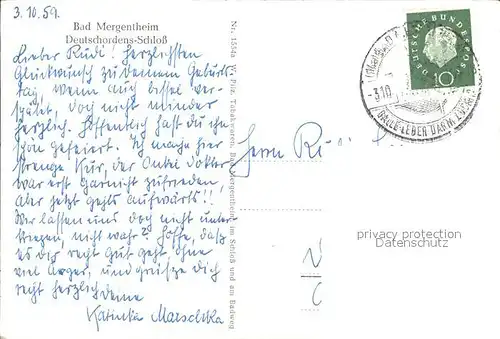 3.10.59.
Bad Mergentheim
Deutschordens-Schloß
Lieber Rudi! Herzlichsten
Glückwunsch zu Deinem Geburts-
tag, wenn auch bissel ver-
spätet, doch nicht minder
herzlich. Hoffentlich hast du ihn
schön gefeiert. Ich mache hier
strenge Kur, der Onkel Doktor
war erst garnicht zufrieden,
Aber jetzt gehts aufwärts!!
Wir lassen uns doch nicht unter
kriegen, nicht wahr? Hoffe, daß
es dir recht gut geht, ohne
viel Ärger, und grüße dich
recht herzlich deine
Katinka Marschka
W. Pilz, Tabakwaren, Bad Mergentheim im Schloß und am Badweg
DEUTSCHE BUNDESPOST
10
-3.10
GALLE LEBER DARM ZUCKER
Herrn
privacy protection
Datenschutz